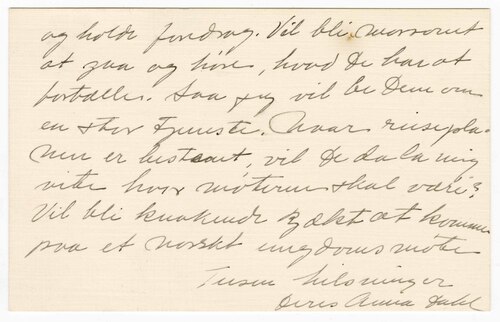 og holde foredrag. Vil bli morsomt
at gaa og høre, hvad De har at
fortælle. Saa jeg vil be Dem om
en stor tjeneste. Naar reisepla-
nen er bestemt, vil De da la mig
vite hvor møterne skal være?
Vil bli knakende kjækt at komme
paa et norskt ungdomsmøte
Tusen hilsninger
Deres Anna Dahl